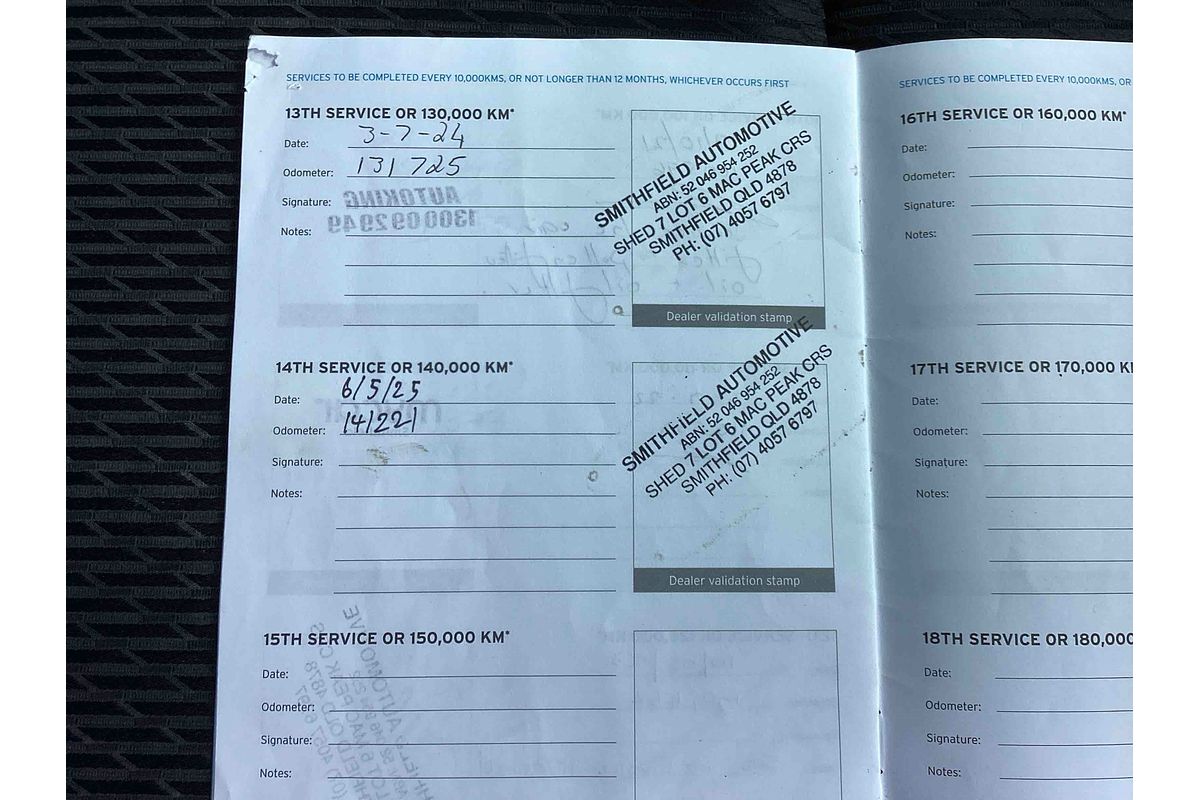 SERVICES TO BE COMPLETED EVERY 10,000KMS, OR NOT LONGER THAN 12 MONTHS, WHICHEVER OCCURS FIRST
13TH SERVICE OR 130,000 KM*
Date: 3-7-24
Odometer: 131725
Signature:
Notes:
AUTOKING
1300092949
SMITHFIELD AUTOMOTIVE
ABN: 52 046 954 252
SHED 7 LOT 6 MAC PEAK CRS
SMITHFIELD QLD 4878
PH: (07) 4057 6797
Dealer validation stamp
14TH SERVICE OR 140,000 KM*
Date: 6/5/25
Odometer: 141221
Signature:
Notes:
SMITHFIELD AUTOMOTIVE
ABN: 52 046 954 252
SHED 7 LOT 6 MAC PEAK CRS
SMITHFIELD QLD 4878
PH: (07) 4057 6797
Dealer validation stamp
15TH SERVICE OR 150,000 KM*
Date:
Odometer:
Signature:
Notes:
SERVICES TO BE COMPLETED EVERY 10,000KMS, OR
16TH SERVICE OR 160,000 KM*
Date:
Odometer:
Signature:
Notes:
17TH SERVICE OR 170,000 K
Date:
Odometer:
Signature:
Notes:
18TH SERVICE OR 180,000
Date:
Odometer:
Signature:
Notes: